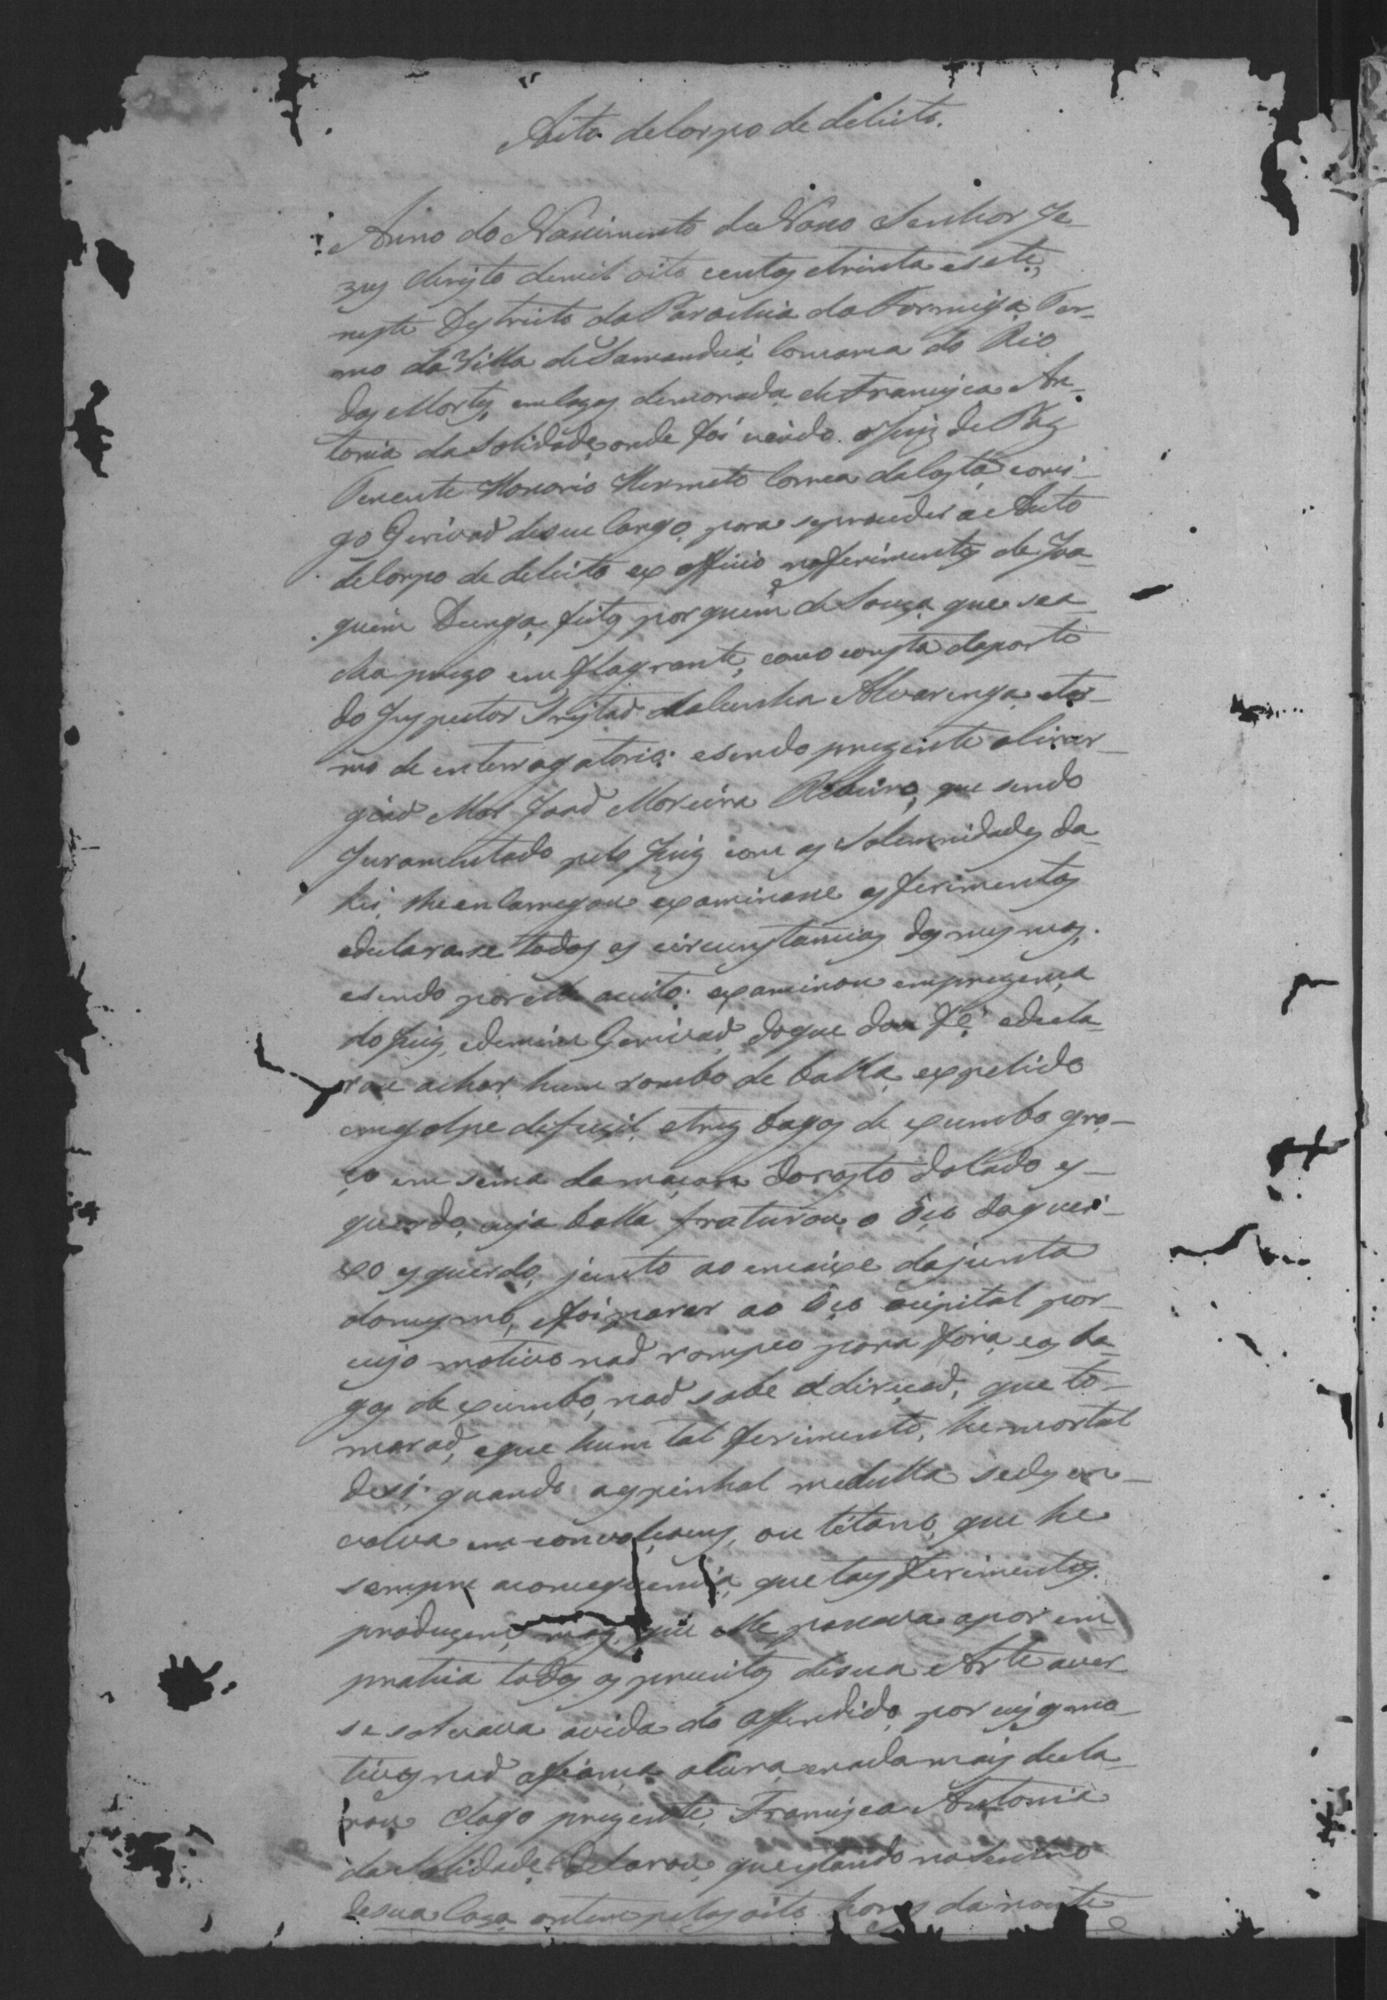 Auto de Corpo de delicto.
Anno do Nascimento de Nosso Senhor Je-
zus Christo de mil oito centos e trinta e sete,
neste Destricto da Parochia da Formiga Ter-
mo da Villa de Tamanduá Comarca do Rio
das Mortes, em Cazas de morada de Francisca An-
tonia da Solidade onde foi vindo o Juiz de Paz
Tenente Honorio Hermeto Correa da Costa comi-
go Escrivaõ de seu Cargo, para se proceder a Auto
de Corpo de delicto ex officio nos ferimentos de Joa-
quim Dunga, feitos por quim de Souza que se a-
cha prezo em flagrante, como consta da parte
do Inspector Tristaõ da Cunha Alvarenga e ter-
mo de enterrogatorio: e sendo prezente o Cirur-
giaõ Mor Joaõ Moreira Ribeiro, que sendo
Juramentado pelo Juiz com as Solemnidades da
Lei, lhe encarregou examinase os ferimentos
e declarase todas as circunstancias dos mesmos.
e sendo por elle aceito: examinou em prezença
do Juiz, e de mim Escrivaõ do que dou fé: e decla-
rou achar hum rombo de balla expelido
em golpe de fuzil, e tres bagos de xumbo gro-
ço em sima da maçan do rosto do lado es-
querdo, cuja balla fraturou o Oço do quei-
xo esquerdo, junto ao encaixe da junta
do mesmo, e foi parar ao Oço ocipital por
cujo motivo naõ rompeo para fóra, e os ba-
gos de xumbo, naõ sabe a direçaõ, que to-
maraõ, e que hum tal ferimento, he mortal
de si; quando a espinhal medulla se des en-
volva em convolçoens, ou tétano, que he
sempre a conseqüencia, que tais ferimentos.
produzem, mas, que elle passava a por em
pratica todos os preceitos de sua Arte a ver
se salvava a vida do Offendido, por cujos mo-
tivos naõ afiança a Cura, e nada mais decla-
rou E logo prezente, Francisca Antonia
da Solidade declarou, que estando no terreiro
de sua Caza ontem pelas oito horas da noute